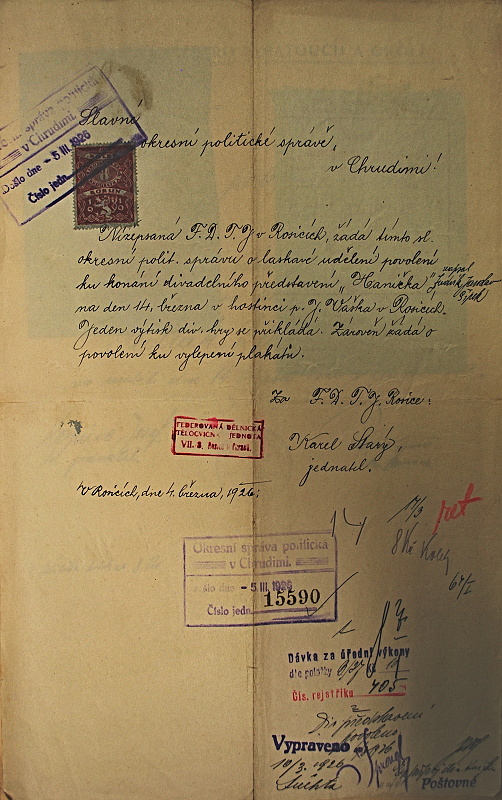 Okresní správa politická
v Chrudimi.
Došlo dne - 5 III. 1926
Číslo jedn.
Slavné
okresní politické správě,
v Chrudimi!
KORUN
1919
Nížepsaná F. D. T. J. v Rosicích, žádá tímto sl.
okresní polit. správu o laskavé udělení povolení
ku konání divadelního představení „Hanička" napsal
na den 14. března v hostinci p. J. Vaška v Rosicích.
Jeden výtisk div. hry se přikládá. Zároveň žádá o
povolení ku vylepení plakátů.
Za F. D. T. J. Rosice:
FEDEROVANÁ DĚLNICKÁ
TĚLOCVIČNÁ JEDNOTA
Karel Starý,
jednatel.
V Rosicích, dne 4. března, 1926.
14
17/3
8 Kč kolky
Okresní správa politická
v Chrudimi.
Došlo dne - 5 III. 1926
Číslo jedn. 15590
Dávka za úřední výkony
dle položky
Čís. rejstříku 405
Div. představení
povoleno
Vypraveno
10/3. 1926
Poštovné